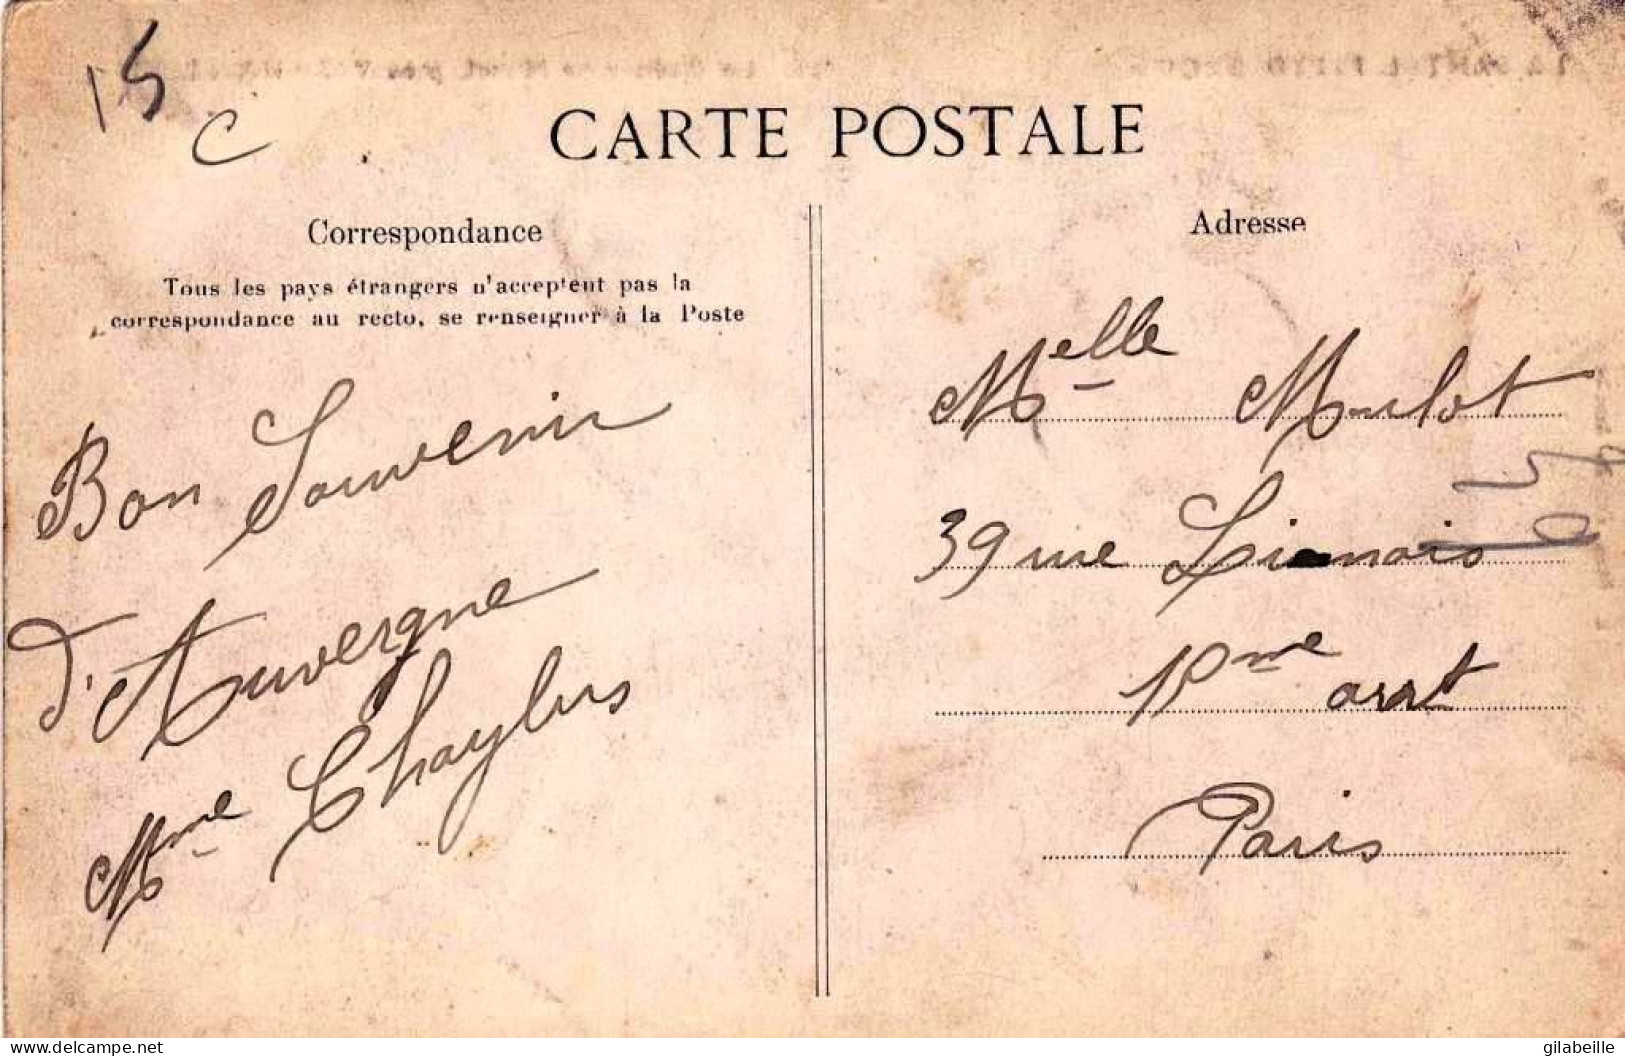 15
C
CARTE POSTALE
Correspondance
Tous les pays étrangers n'acceptent pas la
correspondance au recto, se renseigner à la Poste
Bon Souvenir
d'Auvergne
Mme Chaylus
Adresse
Melle Mulot
39 rue Linois
15me arrt
Paris
www.delcampe.net
gilabeille